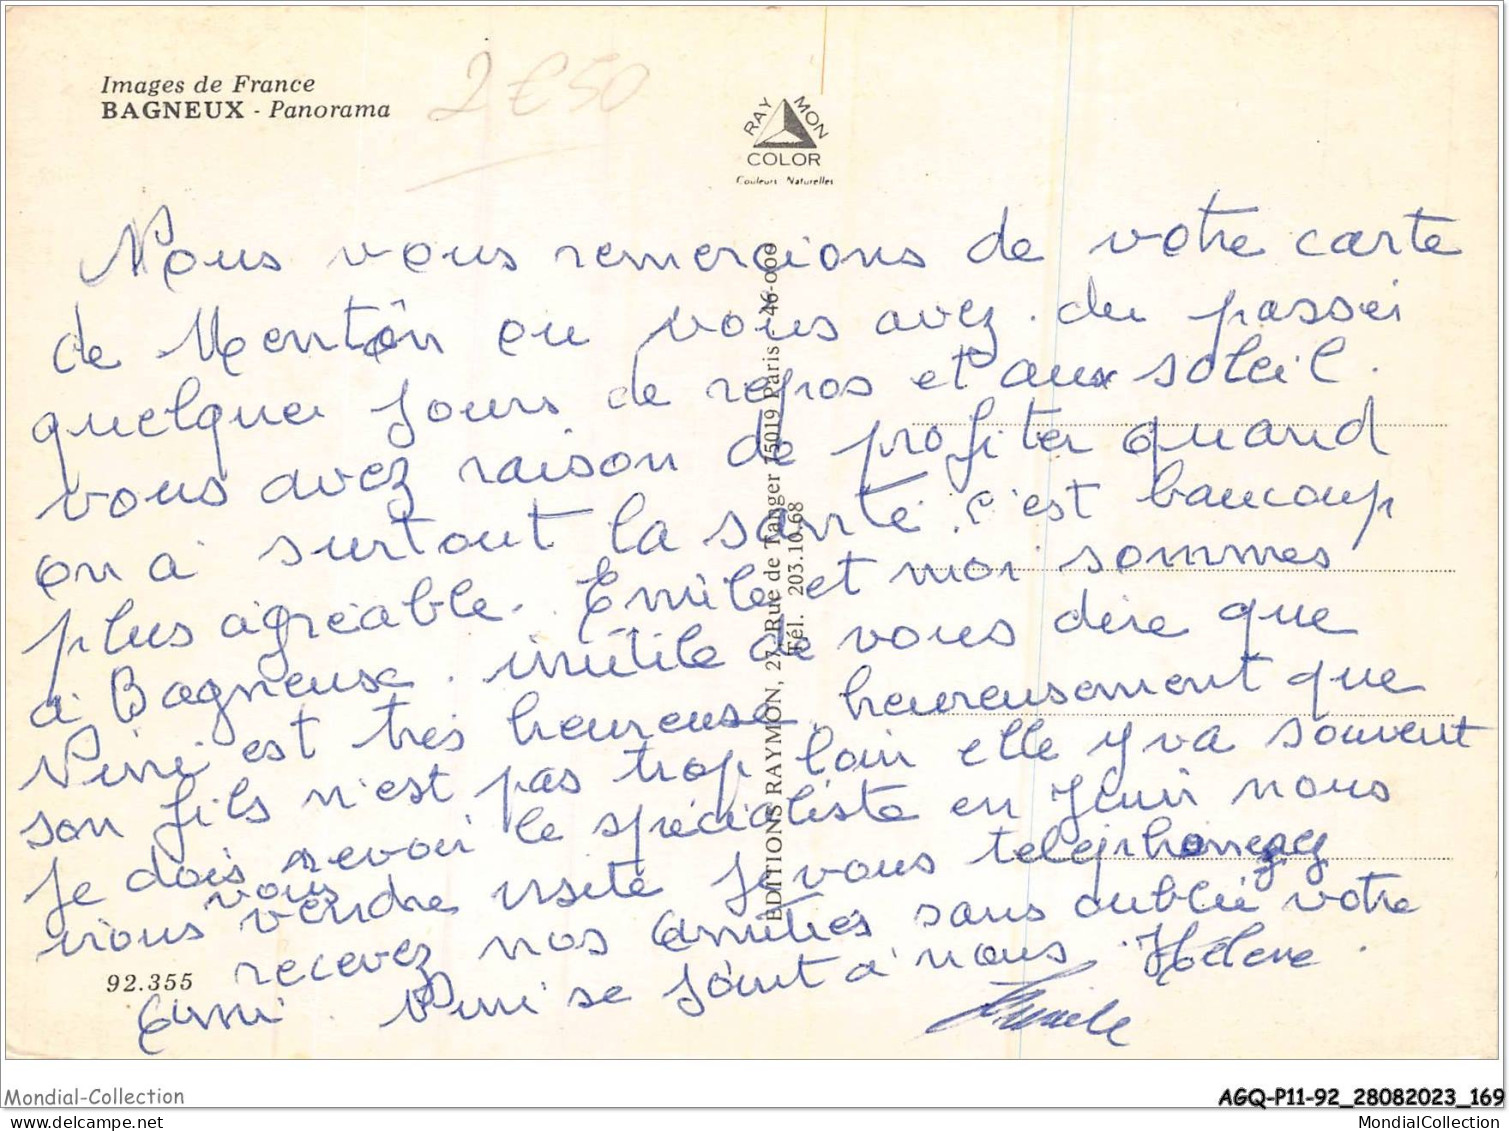 Images de France
BAGNEUX - Panorama
2€50
RAYMON
COLOR
Couleurs Naturelles
Nous vous remercions de votre carte
de Mentôn ou vous avez du passer
quelques jours de repos et aux soleil.
vous avez raison de profiter quand
on a surtout la santé. c'est baucoup
plus agréable. Emile et moi sommes
à Bagneux. inutile de vous dire que
Nini est très heureuse, heureusement que
son fils n'est pas trop loin elle y va souvent
je dois revoir le spécialiste en Juin nous
vous
irions rendre visite je vous telephonerez
recevez nos amitiés sans oublié votre
ami. Nini se joint à nous. Hélène.
Emile
EDITIONS RAYMON, 27, Rue de Tanger 75019 Paris - 46-000
Tél. 203.10.68
92.355
Mondial-Collection
AGQ-P11-92_28082023_169
delcampe.net
MondialCollection